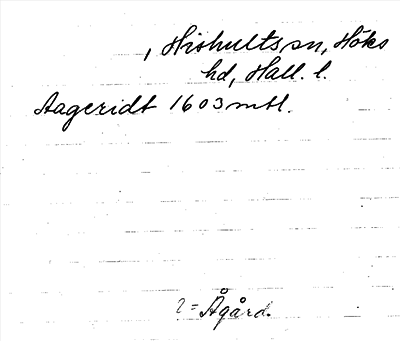 , Hishults sn, Höks
hd, Hall. l.
Aageridt 1603 mtl.
? = Ågård.